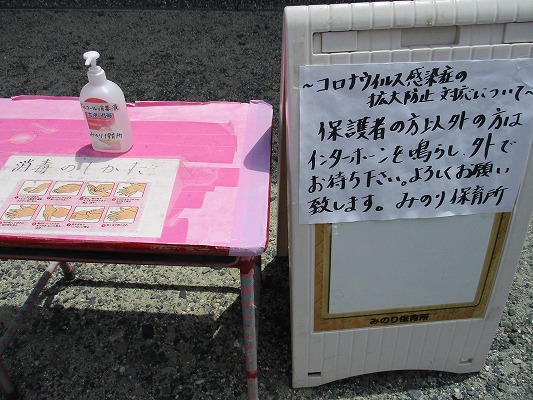 アルコール消毒液
みのり保育所
消毒のしかた
～コロナウイルス感染症の
拡大防止対策について～
保護者の方以外の方は
インターホーンを鳴らし、外で
お待ち下さい。よろしくお願い
致します。みのり保育所
みのり保育所